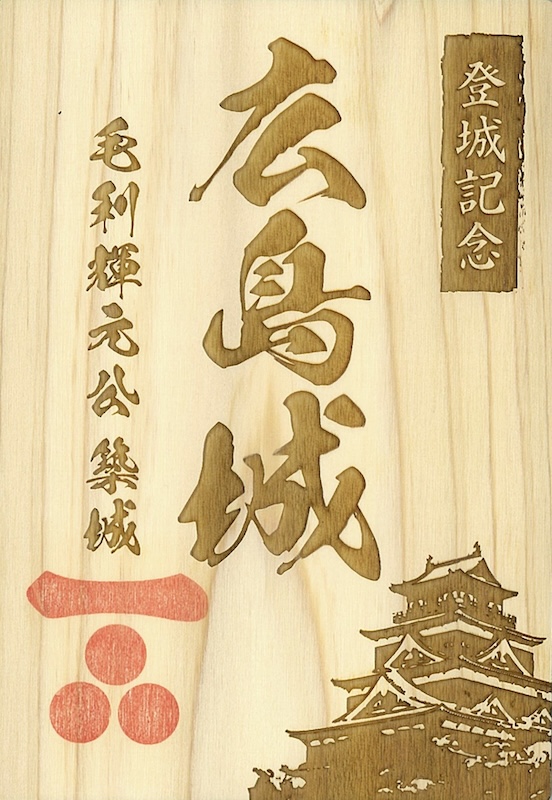 登城記念
広島城
毛利輝元公築城